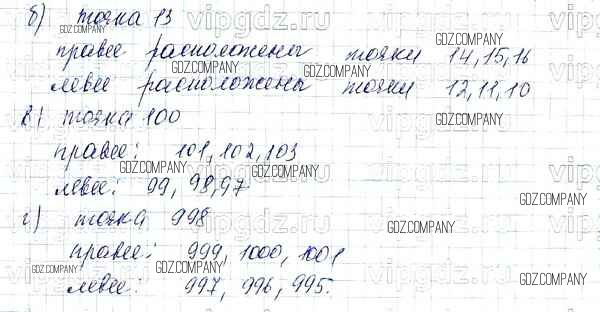 б) точка 13
правее расположены точки 14, 15, 16
левее расположены точки 12, 11, 10
в) точка 100
правее: 101, 102, 103
левее: 99, 98, 97
г) точка 998
правее: 999, 1000, 1001
левее: 997, 996, 995.